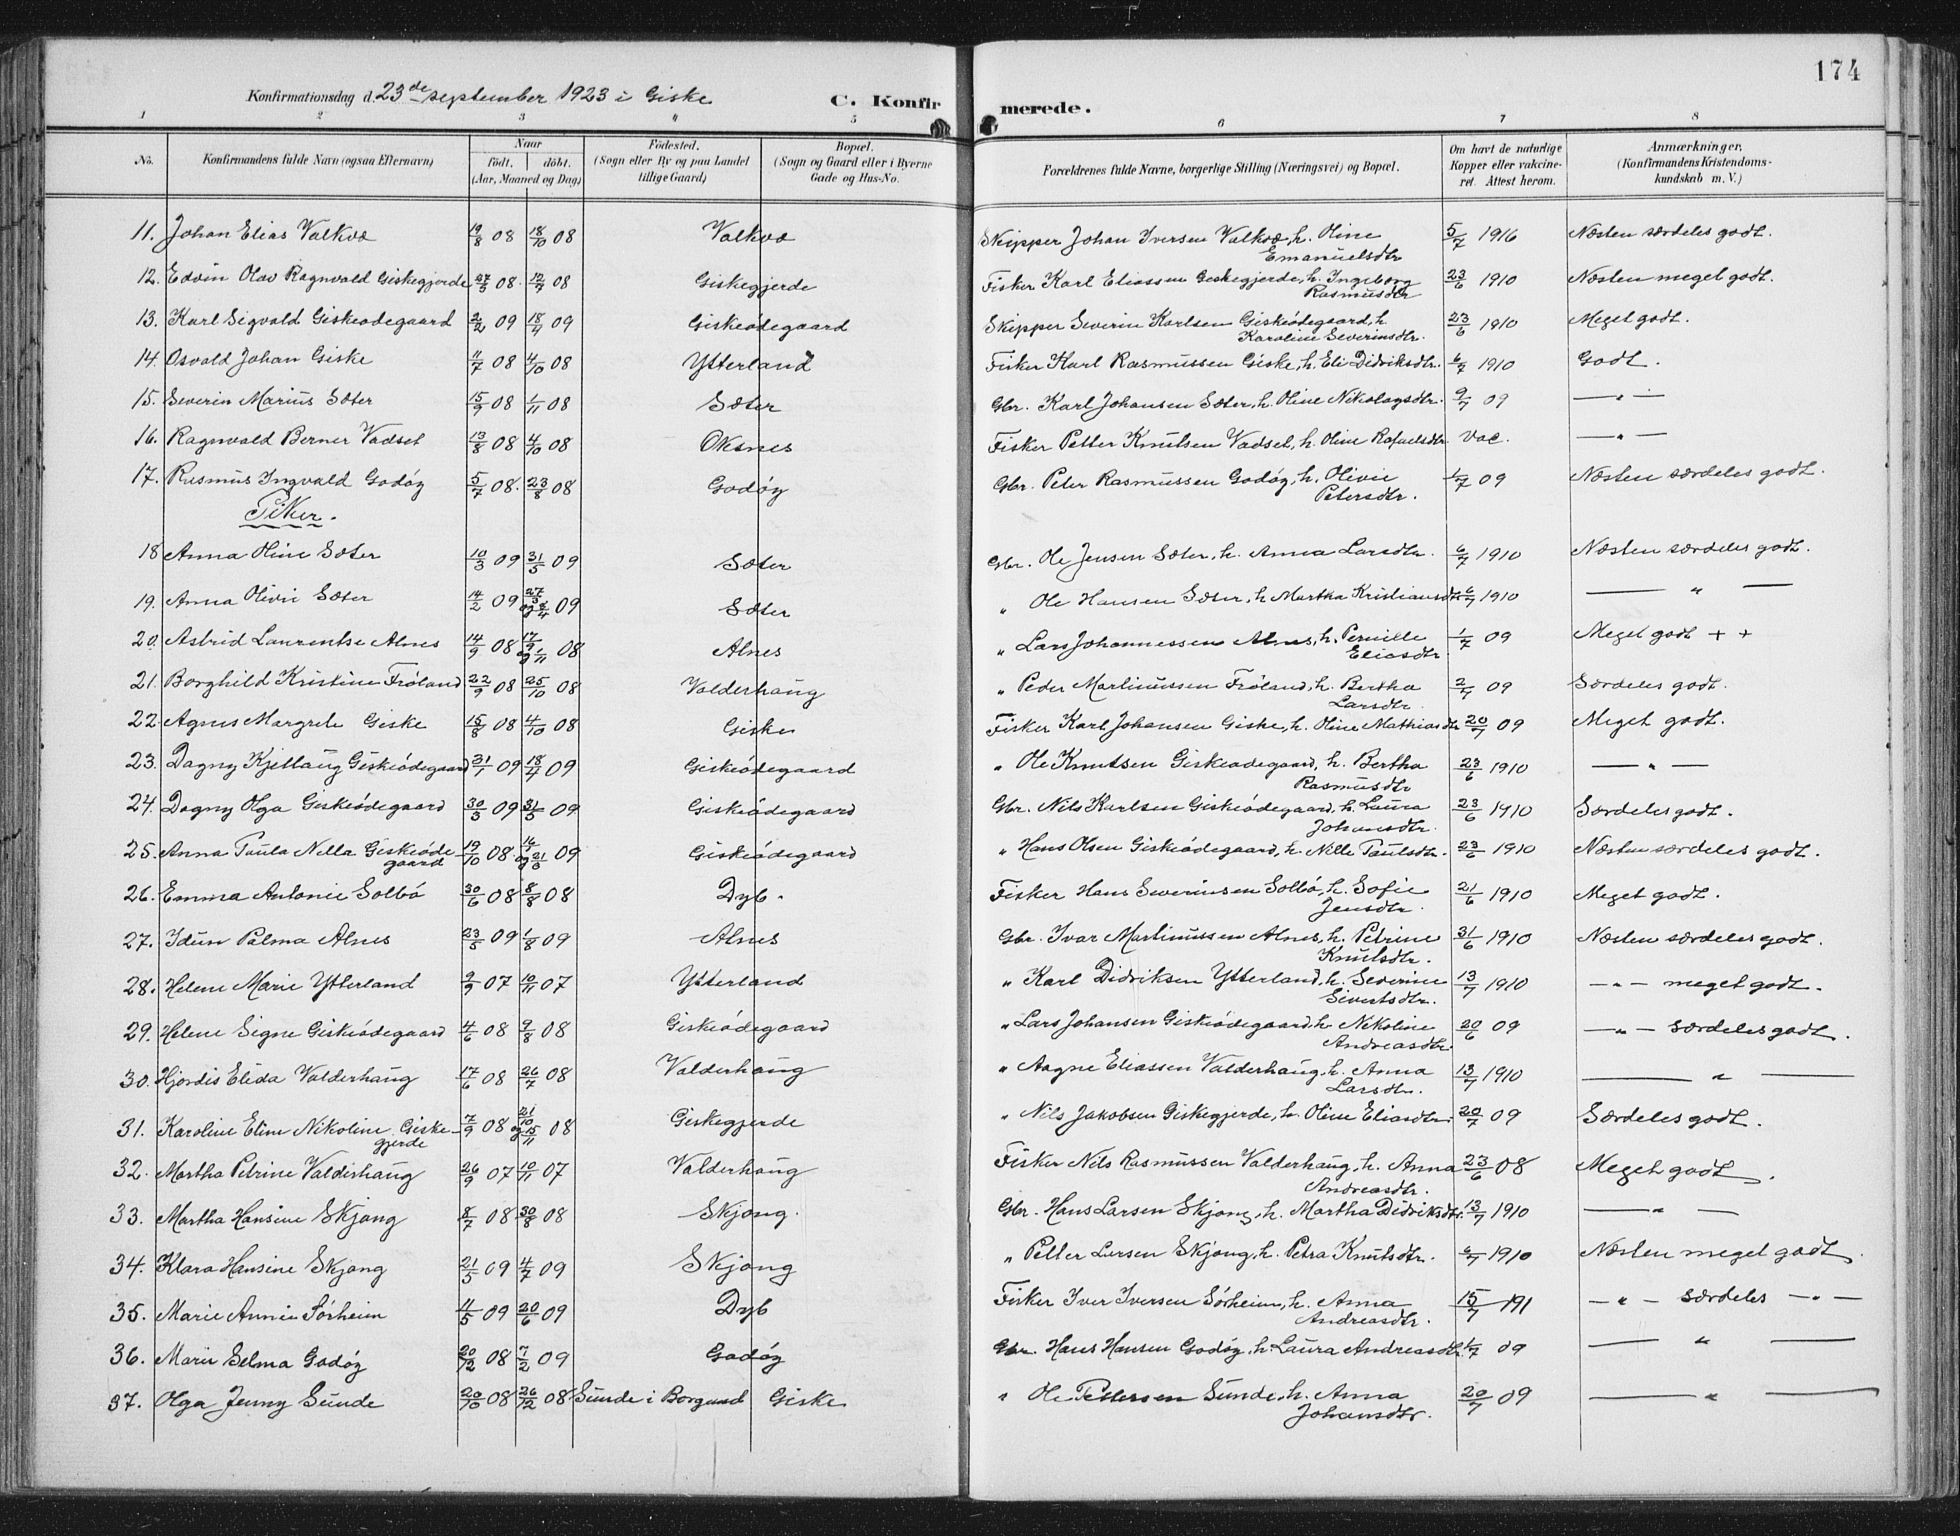 174
Konfirmationsdag d. 23de september 1923 i Giske C. Konfirmerede.
1 2 3 4 5 6 7 8
No. Konfirmandens fulde Navn (ogsaa Efternavn) Naar födt. döbt. (Aar, Maaned og Dag) Födested. (Sogn eller By og paa Landet tillige Gaard) Bopæl. (Sogn og Gaard eller i Byerne Gade og Hus-No. Forældrenes fulde Navne, borgerlige Stilling (Næringsvei) og Bopæl. Om havt de naturlige Kopper eller vakcineret. Attest herom. Anmærkninger. (Konfirmandens Kristendomskundskab m. V.)
11. Johan Elias Valkvæ 19/8 08 18/10 08 Valkvæ Skipper Johan Iversen Valkvæ, h. Oline Emanuelsdtr 5/7 1916 Næsten særdeles godt.
12. Edvin Olav Ragnvald Giskegjerde 27/5 08. 12/7 08 Giskegjerde Fisker Karl Eliassen Giskegjerde, h. Ingeborg Rasmusdtr 23/6 1910 Næsten meget godt.
13. Karl Sigvald Giskeødegaard 2/2 09 18/4 09 Giskeødegaard Skipper Severin Karlsen Giskeødegaard, h Karoline Severinsdtr. 23/6 1910 Meget godt.
14. Osvald Johan Giske 11/7 08 4/10 08 Ytterland Fisker Karl Rasmussen Giske, h. Eli Didriksdtr. 6/7 1910 Godt.
15. Severin Marius Sæter 15/9 08 1/11 08 Sæter Gbr. Karl Johansen Sæter, h. Oline Nikolaysdtr. 9/7 09 — " —
16. Ragnvald Berner Vadset 13/8 08 4/10 08 Oksnes Fisker Petter Knutsen Vadset, h. Oline Rafaelsdtr. vac. — " —
17. Rasmus Ingvald Godøy 5/7 08. 23/8 08 Godøy Gbr. Peter Rasmussen Godøy, h. Olivie Petersdtr. 1/7 09 Næsten særdeles godt.
Piker.
18 Anna Oline Sæter 10/3 09 31/5 09 Sæter Gbr. Ole Jensen Sæter, h. Anna Larsdtr. 6/7 1910 Næsten særdeles godt.
19. Anna Olivie Sæter 14/2 09 27/3 og 8/4 09 Sæter " Ole Hansen Sæter, h Martha Kristiansdtr 6/7 1910 — " —
20. Astrid Laurentse Alnes 14/9 08 17/9 og 1/11 08 Alnes " Lars Johannessen Alnes, h. Pernille Eliasdtr. 1/7 09 Meget godt + +
21. Borghild Kristine Frøland 22/9 08 25/10 08 Valderhaug " Peder Martinussen Frøland, h. Bertha Larsdtr. 2/7 09 Særdeles godt.
22. Agnes Margrete Giske 15/8 08 4/10 08 Giske Fisker Karl Johansen Giske, h. Oline Mathiasdtr 20/7 09 Meget godt.
23. Dagny Kjellaug Giskeødegaard 31/1 09 18/4 09 Giskeødegaard " Ole Knutsen Giskeødegaard, h. Bertha Rasmusdtr 23/6 1910 — " —
24. Dagny Olga Giskeødegaard 30/3 09 31/5 09 Giskeødegaard Gbr. Nils Karlsen Giskeødegaard, h. Laura Johansdtr. 23/6 1910 Særdeles godt.
25. Anna Paula Nella Giskeødegaard 19/10 08 og 21/3 09 Giskeødegaard " Hans Olsen Giskeødegaard, h. Nille Paulsdtr. 23/6 1910 Næsten særdeles godt.
26. Emma Antonie Solbø 30/6 08 8/8 08 Dyb. Fisker Hans Severinsen Solbø, h. Sofie Jensdtr. 21/6 1910 Meget godt.
27. Idun Palma Alnes 23/5 09 1/8 09 Alnes Gbr. Ivar Martinussen Alnes, h. Petrine Knutsdtr. 31/6 1910 Næsten særdeles godt.
28. Helene Marie Ytterland 9/9 07 10/11 07 Ytterland " Karl Didriksen Ytterland, h. Severine Sivertsdtr. 13/7 1910 — " — meget godt.
29. Helene Signe Giskeødegaard 4/6 08 9/8 08 Giskeødegaard " Lars Johansen Giskeødegaard, h Nekoline Andreasdtr. 20/6 09 — " — særdeles godt.
30. Hjørdis Elida Valderhaug 17/6 08 26/7 08 Valderhaug " Aagne Eliassen Valderhaug, h. Anna Larsdtr. 13/7 1910 — " —
31. Karoline Eline Nikoline Giskegjerde 7/9 08 21/10 og 15/11 08 Giskegjerde " Nils Jakobsen Giskegjerde, h. Oline Eliasdtr. 20/7 09 Særdeles godt.
32. Martha Petrine Valderhaug 26/9 07 10/11 07 Valderhaug Fisker Nils Rasmussen Valderhaug, h. Anna Andreasdtr. 23/6 08 Meget godt.
33. Martha Hansine Skjong 8/7 08 30/8 08 Skjong. Gbr. Hans Larsen Skjong, h. Martha Didriksdtr. 13/7 1910 — " —
34. Klara Hansine Skjong 21/5 09 4/7 09 Skjong " Petter Larsen Skjong, h. Petra Knutsdtr. 6/7 1910 Næsten meget godt.
35. Marie Annie Sørheim 11/5 09 20/6 09 Dyb Fisker Iver Iversen Sørheim, h. Anna Andreasdtr. 15/7 191 — " — særdeles — " —
36. Marie Selma Godøy 20/12 08 7/2 09 Godøy Gbr. Hans Hansen Godøy, h Laura Andreasdtr. 1/7 09 — " —
37. Olga Jenny Sunde 20/10 08 26/12 08 Sunde i Borgund Giske " Ole Pettersen Sunde, h. Anna Johansdtr. 20/7 09 — " —